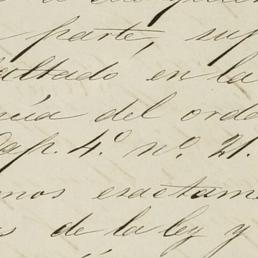 parte, sup
ultado en la
cia del orde
Cap. 4.º n.º 21.
mos exactame
s de la ley y